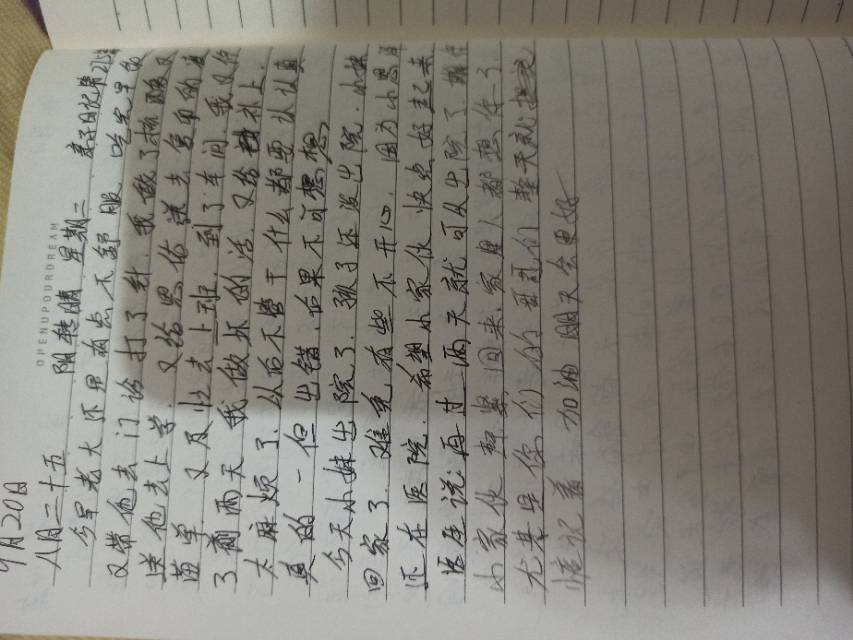 9月20日
八月二十五 阴转晴 星期二 亲子日记第
OPENUPOURDREAM
今早老大还是有点不舒服 吃完早饭
又带他去门诊打了针。我做了核酸又
送他去上学。又给思佑送去宫里的
菌单。又及时去上班。到了车间,我又
了。前两天我做坏的活。又给补上。
太麻烦了。以后不管干什么都要认认真
真的。一但出错,后果不可想想。
今天小妹出院了。孩子还没出院。小妹
回家了。难免有些不开心。因为小思
还在医院。希望小家伙快快好起来
医生说再过两天就可以出院了。
小家伙 回来。家里人都想你了
尤其是你们的哥哥们 整天就
惦记着 加油 明天会更好